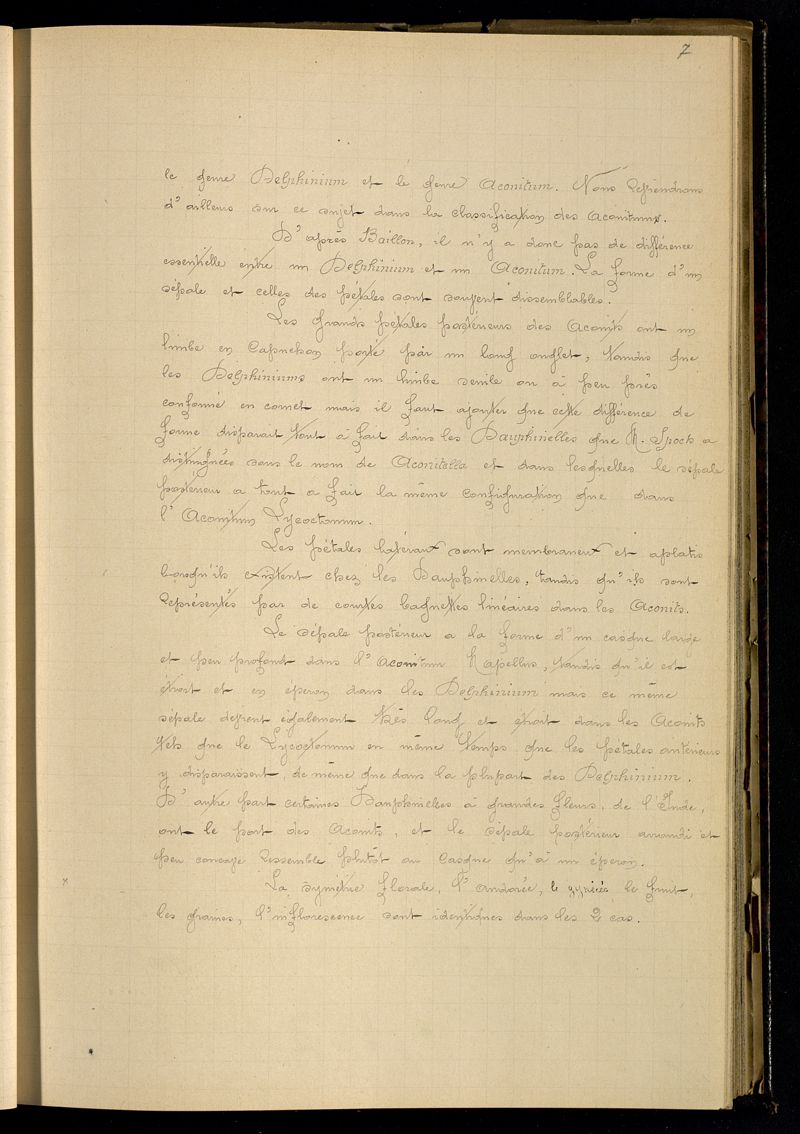 7
le genre Delphinium et le genre Aconitum. Nous reviendrons
d'ailleurs sur ce sujet dans la classification des Aconitums.
D'après Baillon, il n'y a donc pas de différence
essentielle entre un Delphinium et un Aconitum. La forme d'un
sépale et celles des pétales sont souvent dissemblables.
Les grands pétales postérieurs des Aconits ont un
limbe en capuchon porté par un long onglet, tandis que
les Delphiniums ont un limbe sessile ou à peu près
conformé en cornet mais il faut ajouter que cette différence de
forme disparait tout à fait dans les Dauphinelles que M. Spach a
distinguées sous le nom de Aconitella et dans lesquelles le sépale
postérieur a tout a fait la même configuration que dans
l'Aconitum Lycoctonum.
Les pétales latéraux sont membraneux et aplatis
lorsqu'ils existent chez les Dauphinelles, tandis qu'ils sont
représentés par de courtes baguettes linéaires dans les Aconits.
Le sépale postérieur a la forme d'un casque large
et peu profond dans l'Aconitum Napellus, tandis qu'il est
étroit et en éperon dans les Delphinium mais ce même
sépale devient également très long et étroit dans les Aconits
tels que le Lycoctonum en même temps que les pétales antérieurs
y disparaissent, de même que dans la plupart des Delphinium.
D'autre part certaines Dauphinelles à grandes fleurs, de l'Inde,
ont le port des Aconits, et le sépale postérieur arrondi et
peu concave ressemble plutôt au casque qu'à un éperon.
La symétrie florale, l'androcée, le gynécée, le fruit,
les graines, l'inflorescence sont identiques dans les 2 cas.